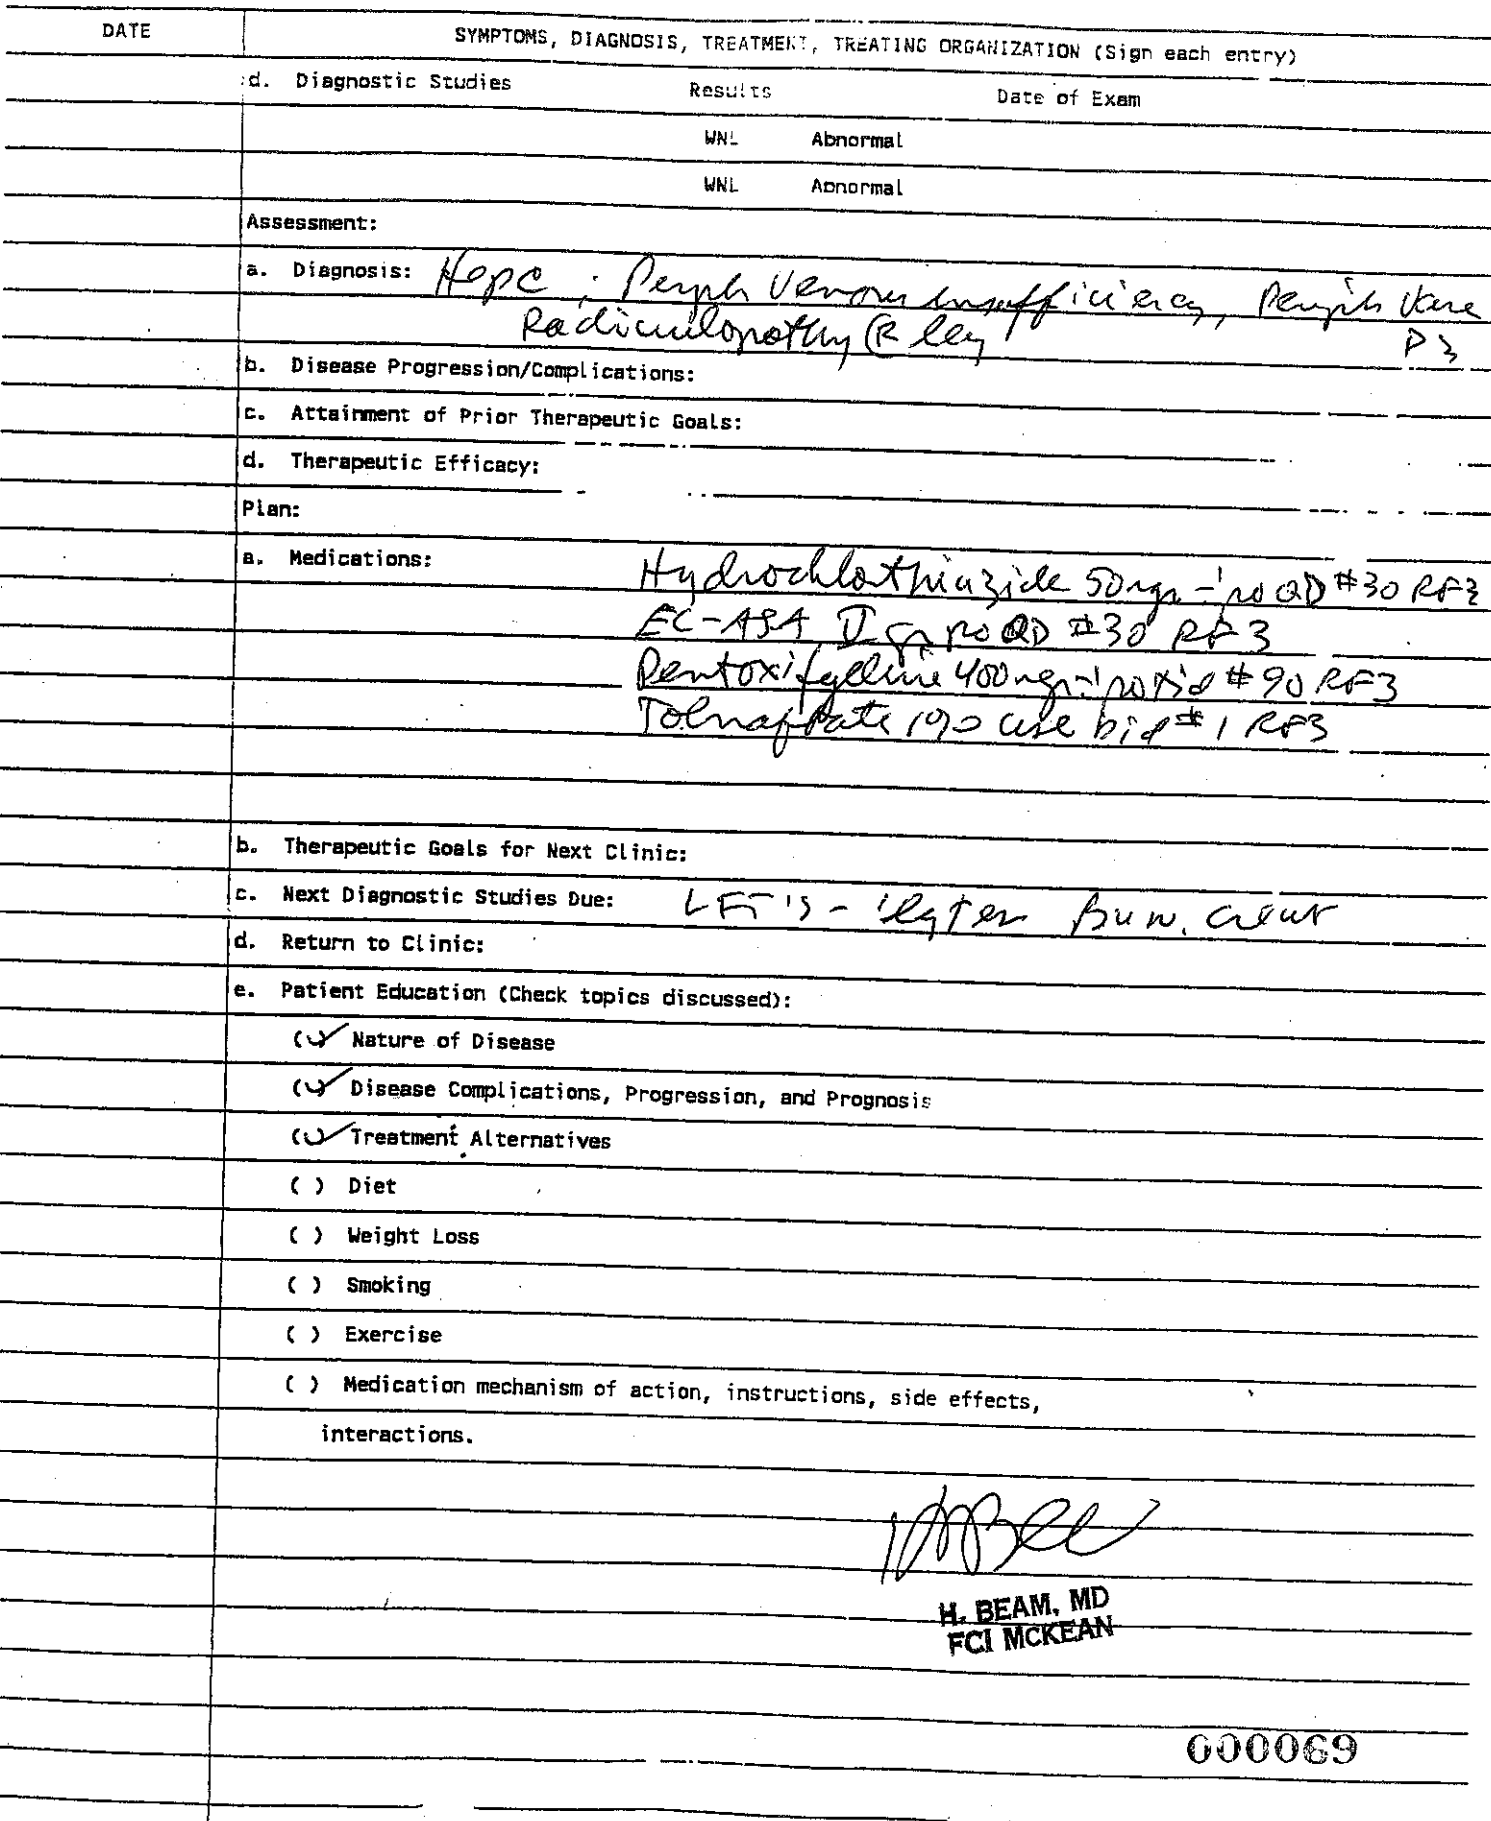 DATE SYMPTOMS, DIAGNOSIS, TREATMENT, TREATING ORGANIZATION (Sign each entry)
d. Diagnostic Studies Results Date of Exam
WNL Abnormal
WNL Abnormal
Assessment:
a. Diagnosis: HepC ; Periph Venous Insufficiency, Periph Vasc
Radiculopathy R leg
b. Disease Progression/Complications:
c. Attainment of Prior Therapeutic Goals:
d. Therapeutic Efficacy:
Plan:
a. Medications: Hydrochlorthiazide 50mgm - i po QD #30 RF3
EC-ASA po QD #30 RF3
Pentoxifylline 400mgm i po tid #90 RF3
Tolnaftate 1% use bid #1 RF3
b. Therapeutic Goals for Next Clinic:
c. Next Diagnostic Studies Due: LFT's - Bun. creat
d. Return to Clinic:
e. Patient Education (Check topics discussed):
(✓) Nature of Disease
(✓) Disease Complications, Progression, and Prognosis
(✓) Treatment Alternatives
( ) Diet
( ) Weight Loss
( ) Smoking
( ) Exercise
( ) Medication mechanism of action, instructions, side effects,
interactions.
H. BEAM, MD
FCI MCKEAN
000069